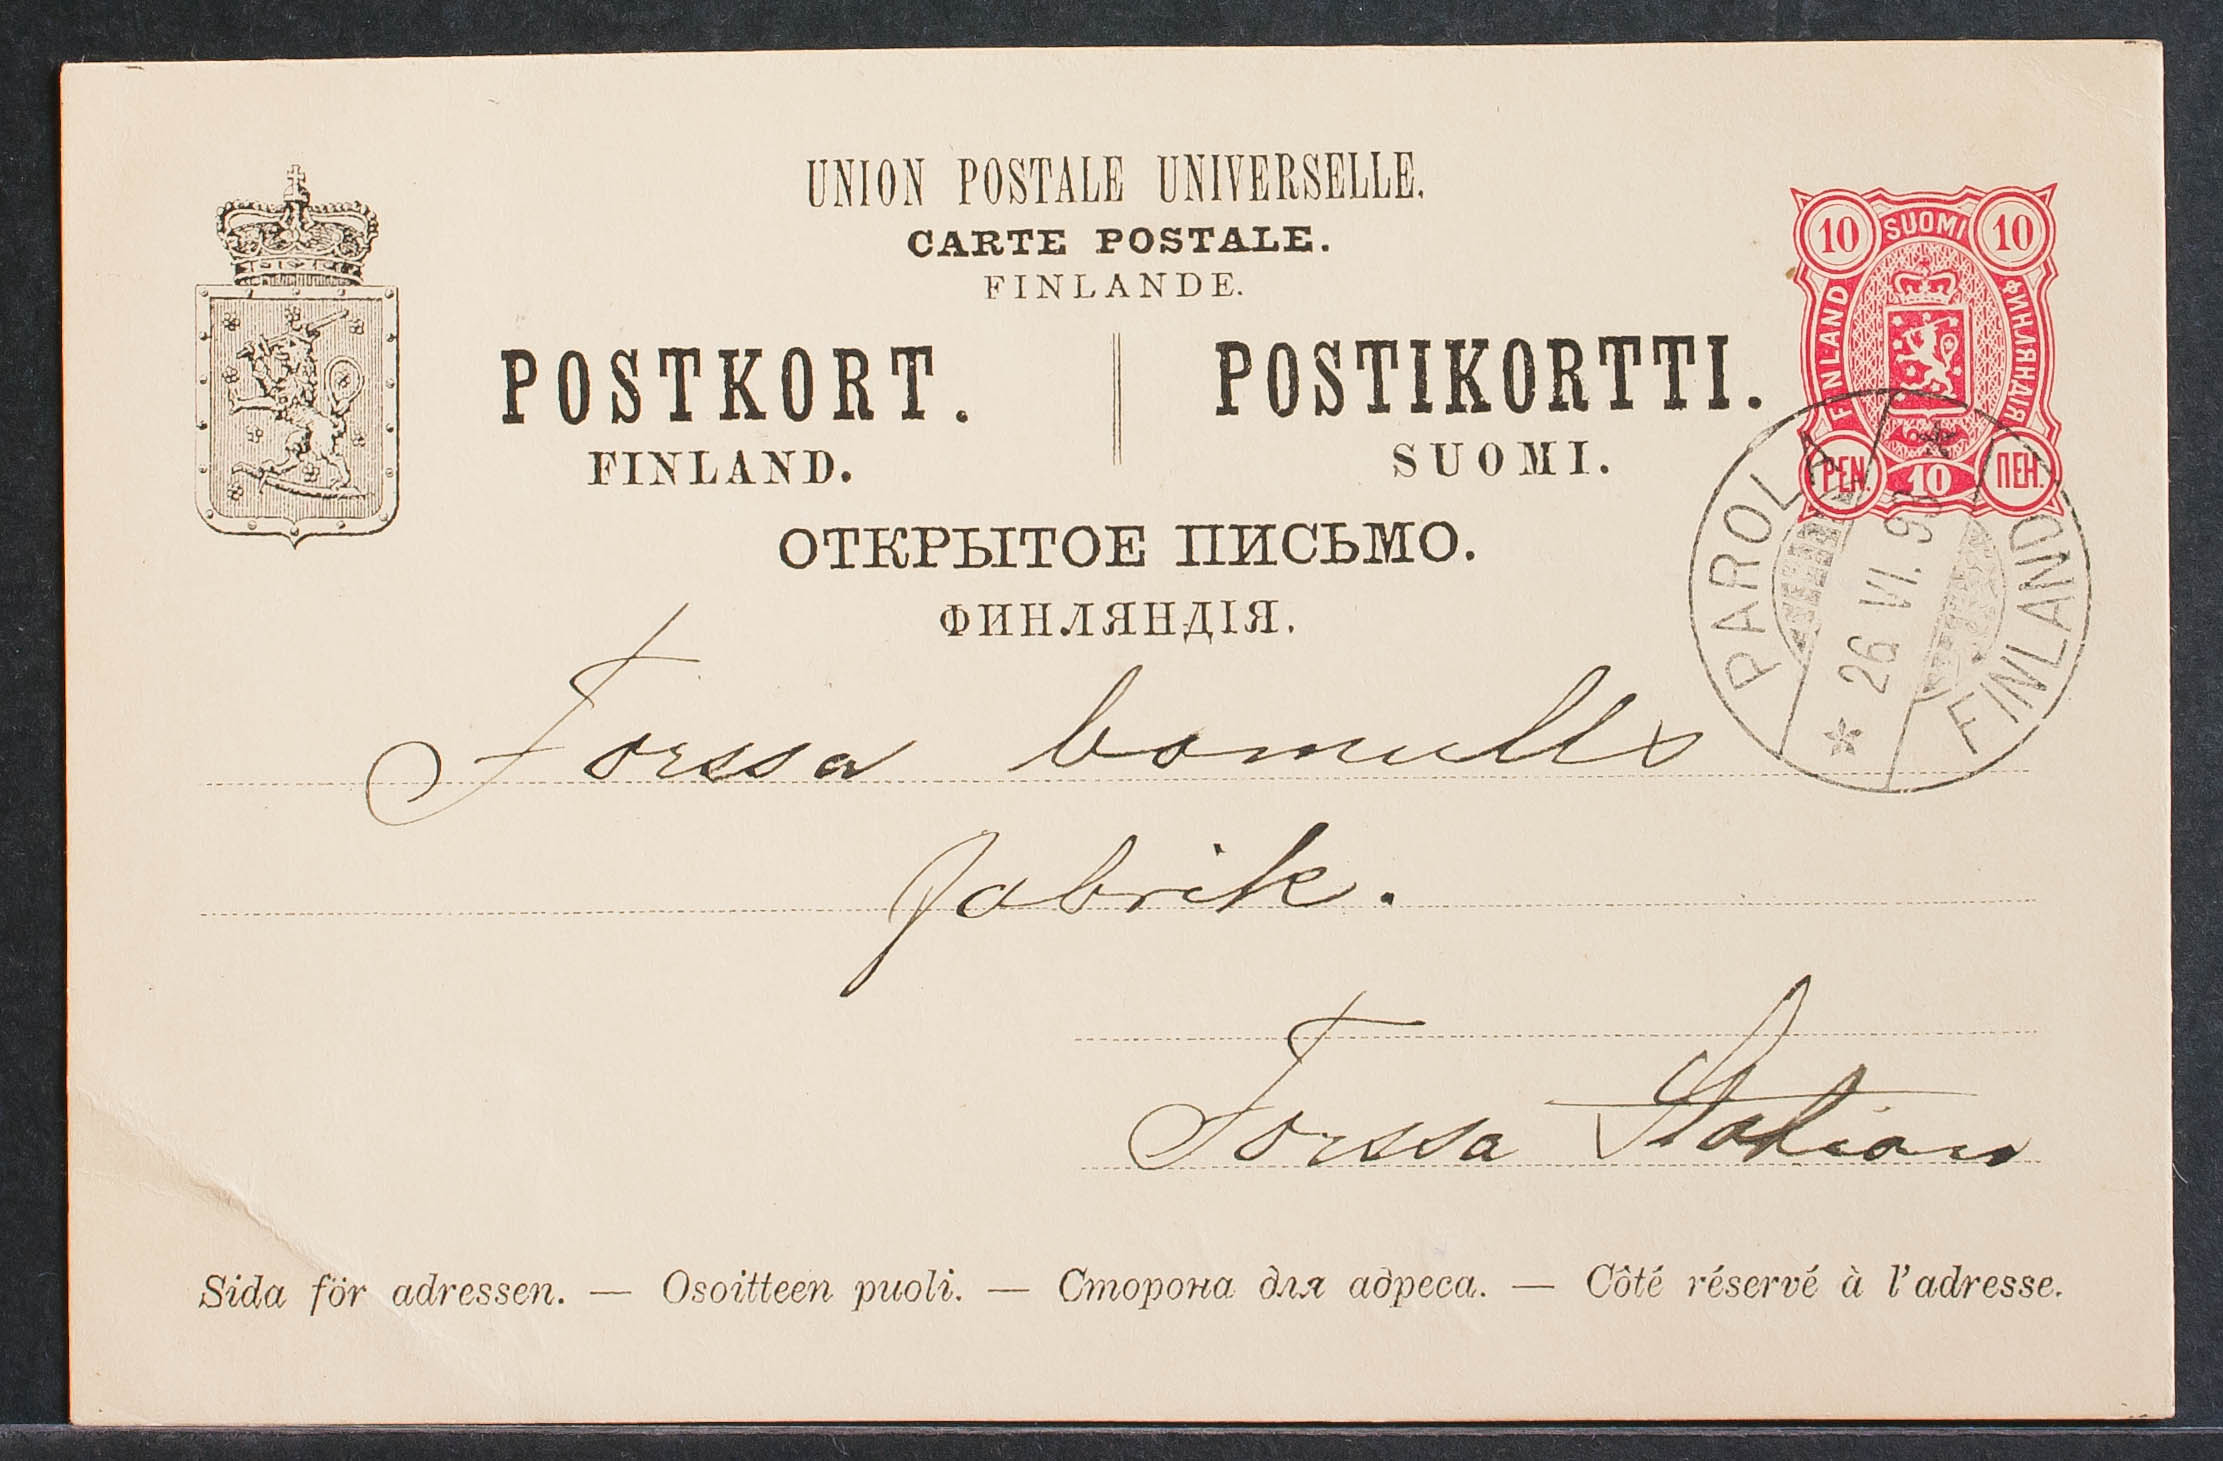 UNION POSTALE UNIVERSELLE.
CARTE POSTALE.
FINLANDE.
POSTKORT.
FINLAND.
POSTIKORTTI.
SUOMI.
ОТКРЫТОЕ ПИСЬМО.
ФИНЛЯНДІЯ.
10 SUOMI 10
FINLAND
ФИНЛЯНДІЯ
PEN. 10 ПЕН.
PAROLA
26 VI.
FINLAND
Forssa bomulls
fabrik.
Forssa Station
Sida för adressen. — Osoitteen puoli. — Сторона для адреса. — Côté réservé à l'adresse.